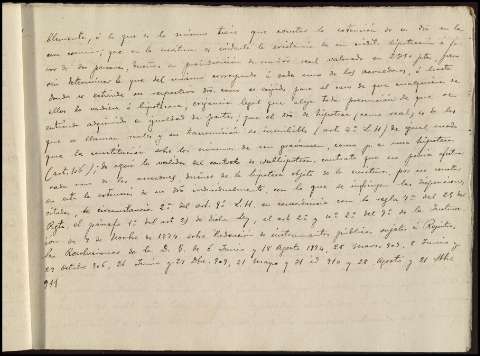 solamente, á lo que es lo mismo tiene que constar la extensión de su dro en la
cosa común; que en la escritura se evidencia la existencia de un crédito hipotecario á fa-
vor de dos personas, dueñas en proindivision de un crédito real valorado en 2750 ptas, pero
sin determinar lo que del mismo corresponde á cada uno de los acreedores, ó hasta
donde se extiende su respectivo dro como se exige para el caso de que cualquiera de
ellos lo cediera ó hipotecara, exigencia legal que aleja toda presunción de que se
entienda adquirido en igualdad de partes; que el dro de hipoteca (como real) es de los
que se llaman reales y su transmisión es inscribible (art 2º L.H) de igual modo
que la constitución sobre los mismos de un gravamen, como p. e. una hipoteca
(art. 106); de aquí la validez del contrato de subhipoteca, contrato que no podria efectuar
cada uno de los acreedores dueños de la hipoteca objeto de la escritura, por no constar
en esta la extensión de su dro individualmente, con lo que se infringen las disposiciones
citadas, la circunstancia 2ª del art 9º L.H. en concordancia con la regla 5ª del 25 del
Regto, el párrafo 1º del art 21 de dicha Ley, el art 2º y nº 2º del 9º de la Instruc-
ión de 9 de Novbre de 1874, sobre Redacción de instrumentos públicos sujetos á Registro,
las Resoluciones de la D. G. de 6 Junio y 18 Agosto 1894, 28 Marzo 903, 8 Junio y
29 octubre 906, 26 Junio y 27 Dbre 909, 21 mayo y 31 id 910 y 28 Agosto y 21 Abril
911